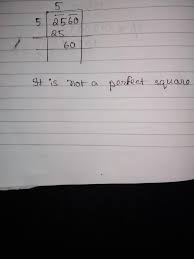 5
5 2560
25
60
It is not a perfect square